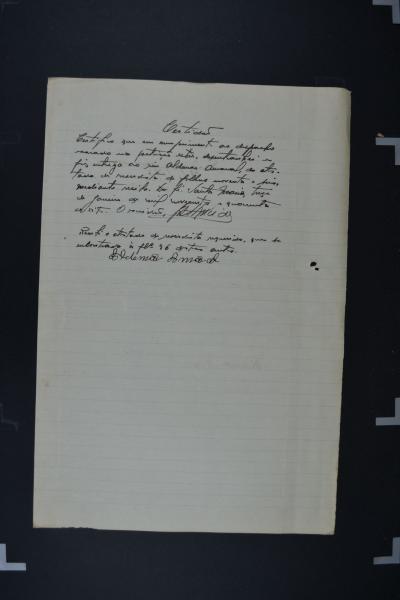 Certidão
Certifico que em cumprimento ao despacho
exarado na petição retro, desentranhei e
fiz entrega ao réu Aldemar Amaral, do ates-
tado de reservista de folhas noventa e seis,
mediante recibo. Dou fé. Santa Maria, treze
de janeiro de mil novecentos e quarenta
e oito. O escrivão,
Recebi o atestado de reservista requerido, que se
encontrava à fls 96 destes autos.